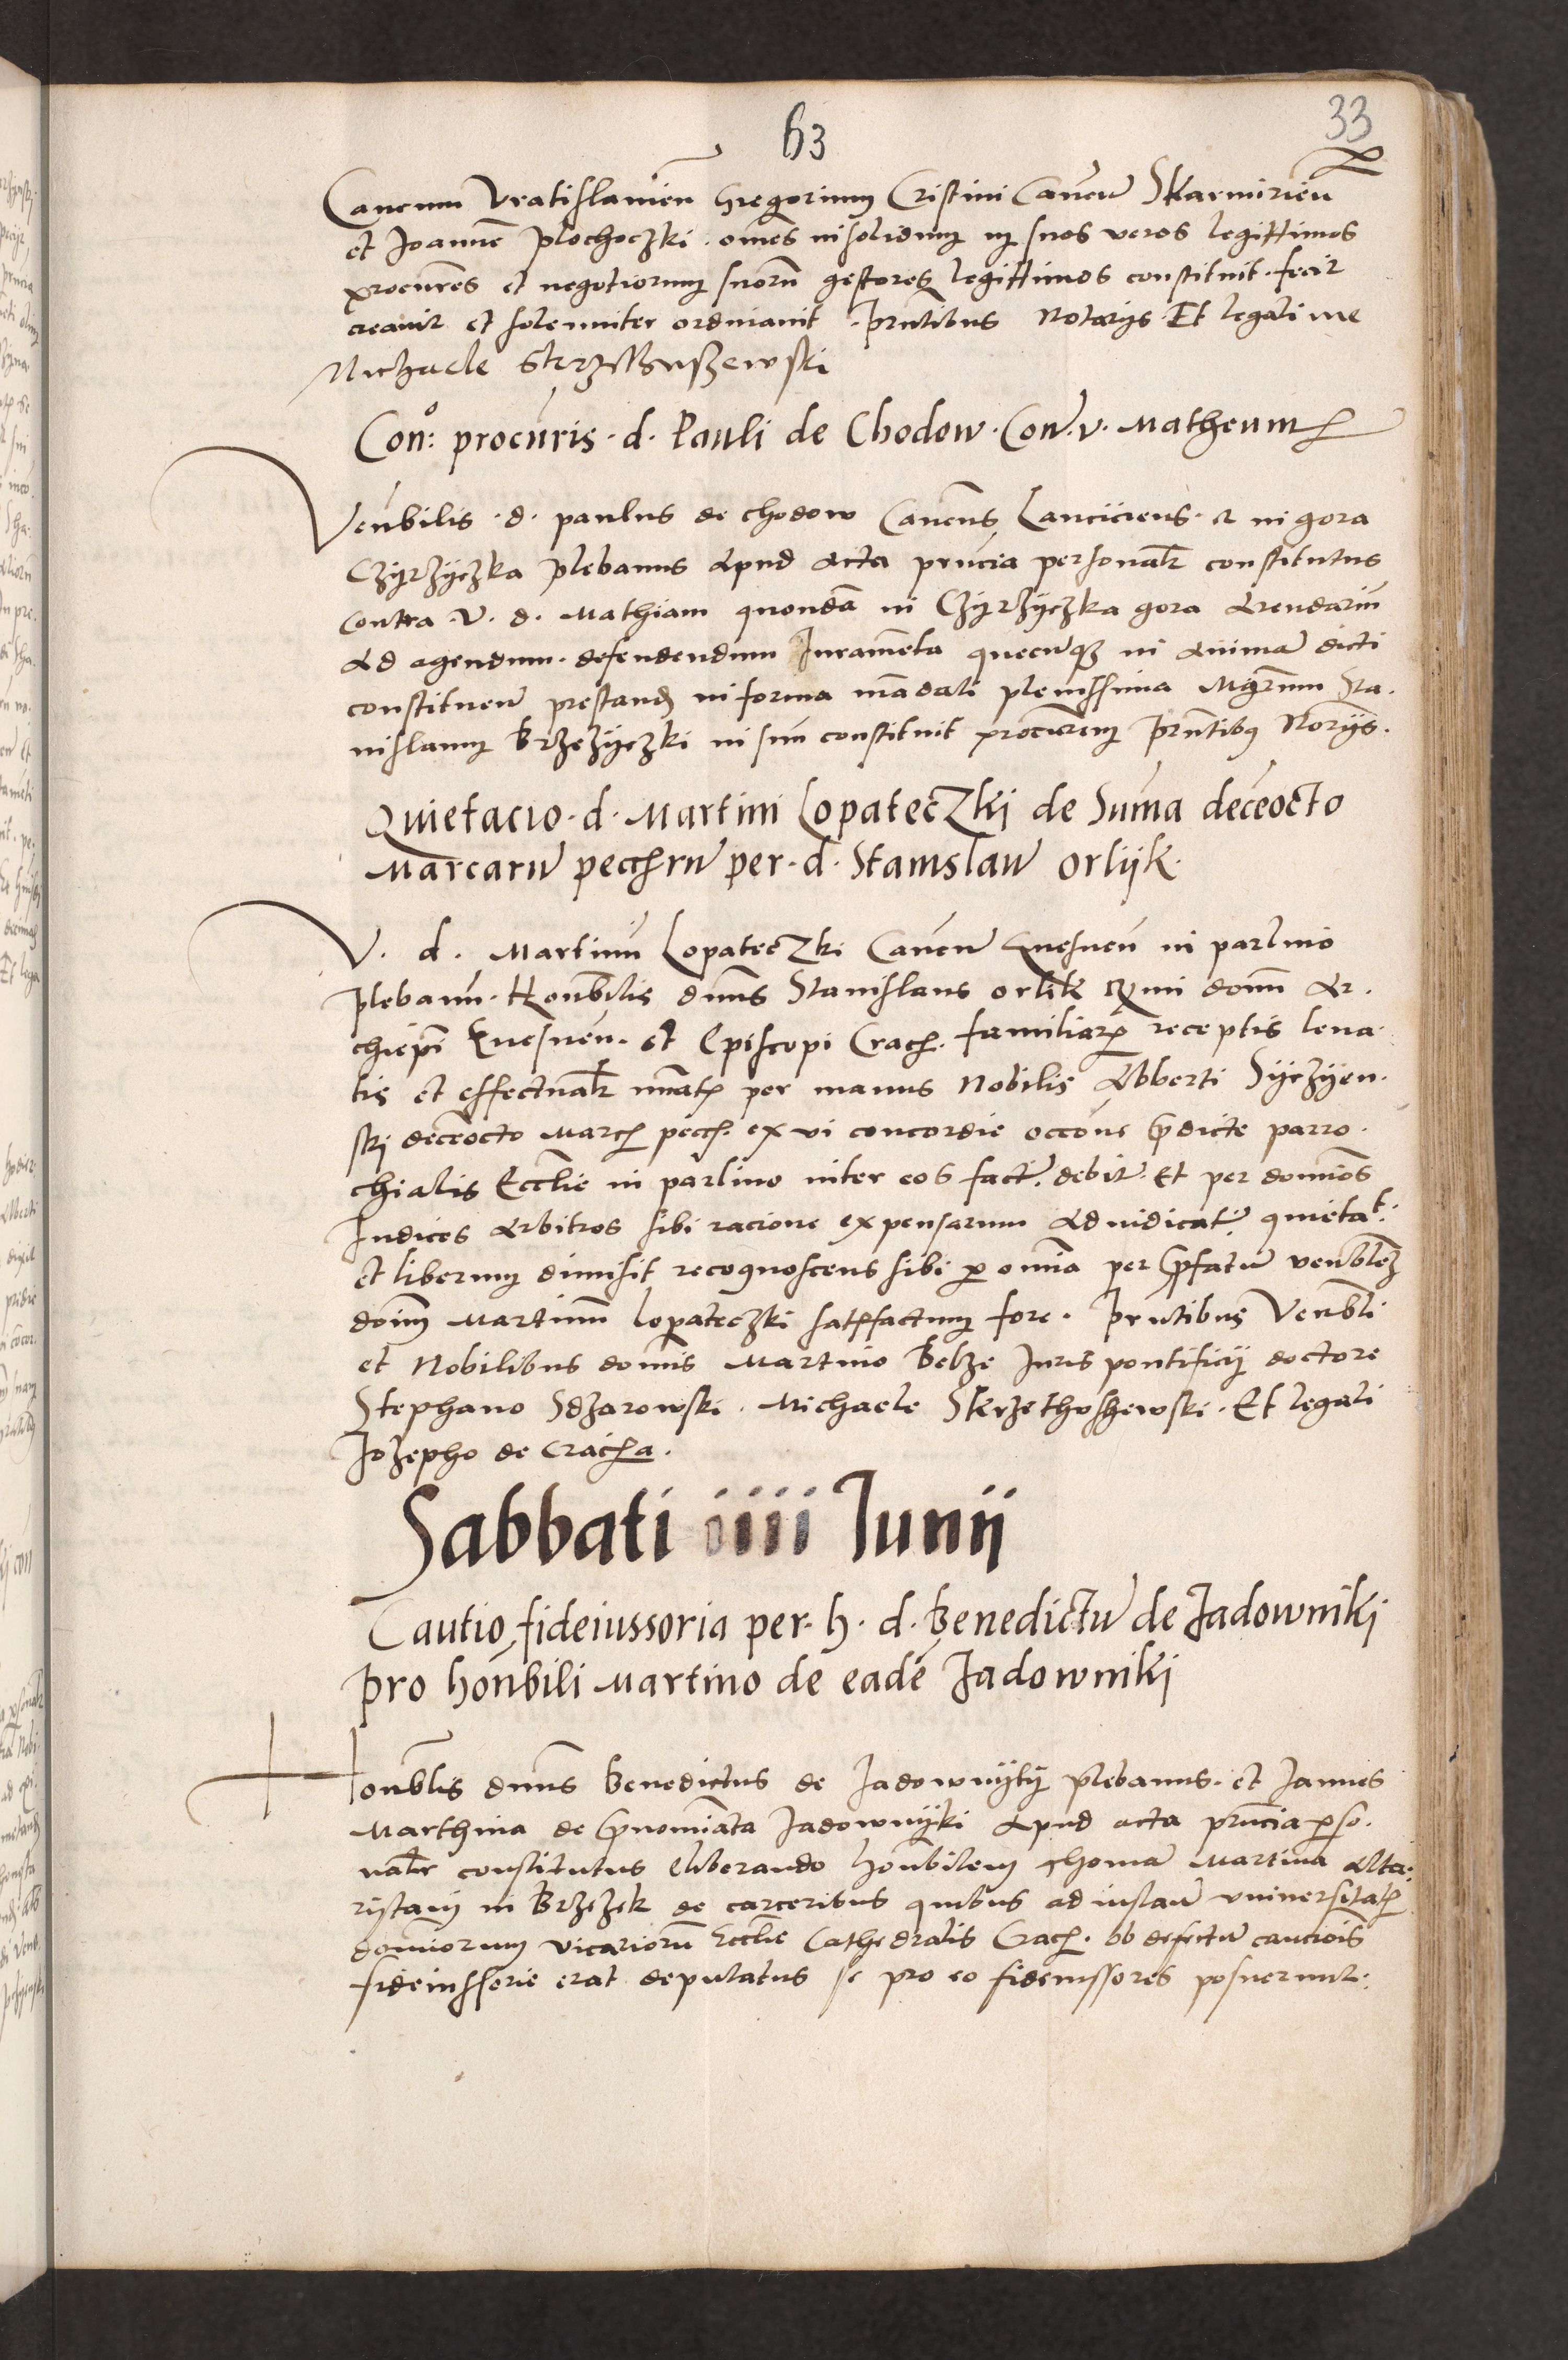 63
33
Canonm Vratislavien̄ Gregorium Cristini Canon̄ Skarmirien̄
et Joannē Plochoczki omēs in solidum in suos veros legittimos
procurēs et negotiorum suorū gestores legittimos constituit fecit
creavit et solenniter ordinavit. Prntibus Notarijs Et legali me
Michaele
Con: procuris d. Pauli de Chodow. Con. v. Matheum
Venbilis d. paulus de chodow Canōus Lanciciens. & in gora
Czyrzyczka plebanus Apud acta prncia personalr constitutus
contra v. d. Mathiam quondā in Czyrzyczka gora Arendariū
Ad agendum. defendendum Iuramēta quecūqz in animā dicti
constituen̄ prestand in forma mādati plenissima Mgrum Sta.
nislaum Brzezyczki in suū constituit procurem Prntibus Norijs.
Quietacio d. Martini Lopateczki de Suma deceocto
Marcarū pecchru per d. Stanislaū Orlijk
V. d. Martinū Lopateczki Canon̄ Gnesnen̄ in parlino
plebanū. Honbilis dnns Stanislaus orlik Rmi domī Ar.
chiepi Gnesnen̄. et Episcopi Crach. familiaris receptis leua
tis et effectualr nuatis per manus Nobilis Alberti Syczyen.
ski deceocto March pecch. ex vi concordie occōne prdicte parro.
chialis Ecclie in parlino inter eos fact. debit. Et per domiōs
Iudices Arbitros sibi racione expensarum Adiudicat. quietat.
et liberum dimisit recognoscens sibi pr omnia per prfatū venblez
doim̄ Martinum lopateczki satisfactum fore. Prntibus Venbli
et Nobilibus domis Martino Belze Iuris pontificij doctore
Stephano Sdzarowski. Michaele Skrzethuszewski. Et legali
Jozepho de Crachа.
Sabbati iiii Junii
Cautio fideiussoria per h. d. Benedictū de Jadowniki
pro honbili Martino de eadē Jadowniki
Honblis dnns Benedictus de Jadowny plebanus et Jannes
Marthina de prnomiata Jadownyki Apud acta prncia perso.
nalr constitutus eliberando honbilem Thomā Martina Alta.
ristam in Brzezek de carceribus quibus ad instan̄ vniversitatis
domiorum vicariorū Ecclie Cathedralis Crach. ob defectū caucionis
fideiussorie erat deputatus se pro eo fideiussores posuerunt.